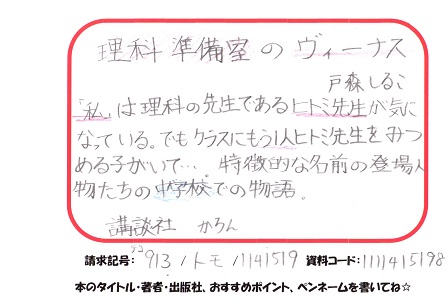 理科準備室のヴィーナス
戸森しるこ
「私」は理科の先生であるヒトミ先生が気に
なっている。でもクラスにもう1人ヒトミ先生をみつ
める子がいて…。特徴的な名前の登場人
物たちの中学校での物語。
講談社 かろん
請求記号: 913 / トモ / 1141519 資料コード: 1111415198
本のタイトル・著者・出版社、おすすめポイント、ペンネームを書いてね☆